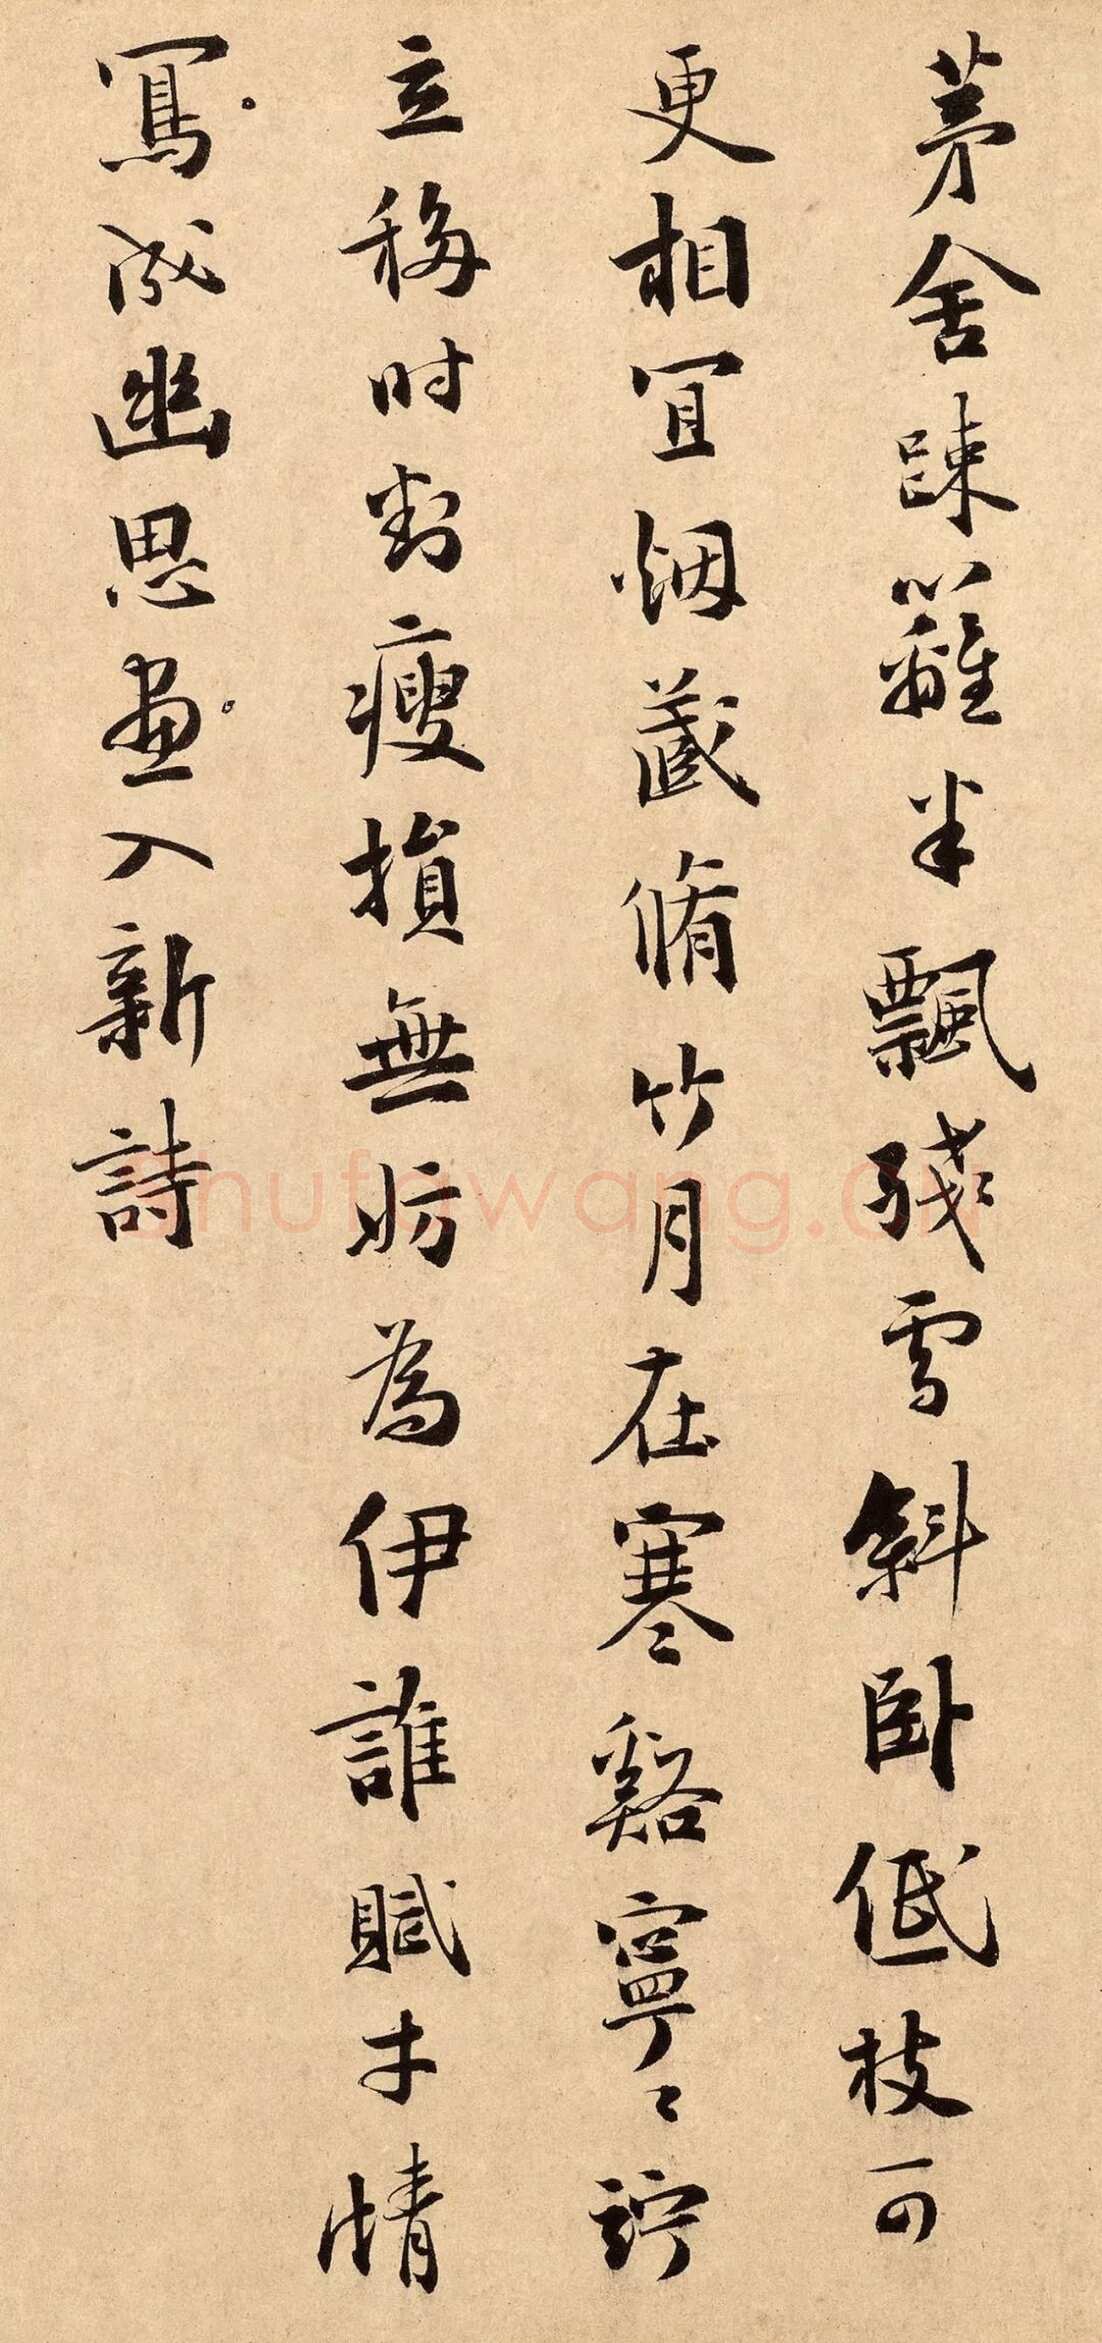 茅舍踈籬半飄殘雪斜卧低枝可
更相宜烟蔵脩竹月在寒谿寧〻竚
立移时對瘦損無妨為伊誰賦才情
寫成幽思畫入新詩
Shufawang.CN